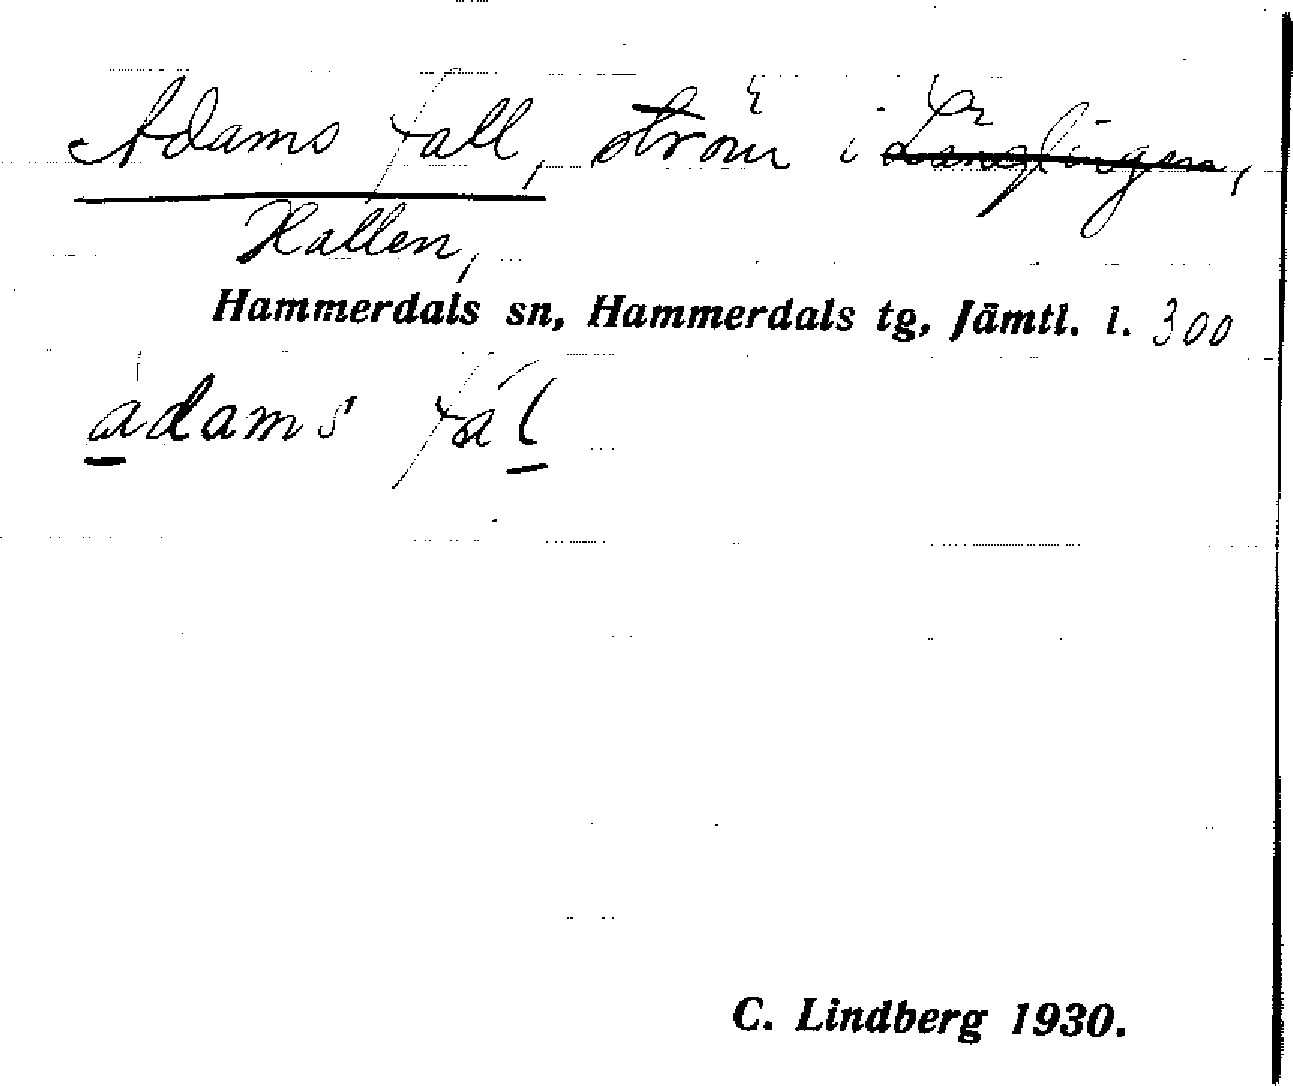 Adams fall, ström i Långlingen,
Hallen,
Hammerdals sn, Hammerdals tg, Jämtl. l. 300
adams fal
C. Lindberg 1930.